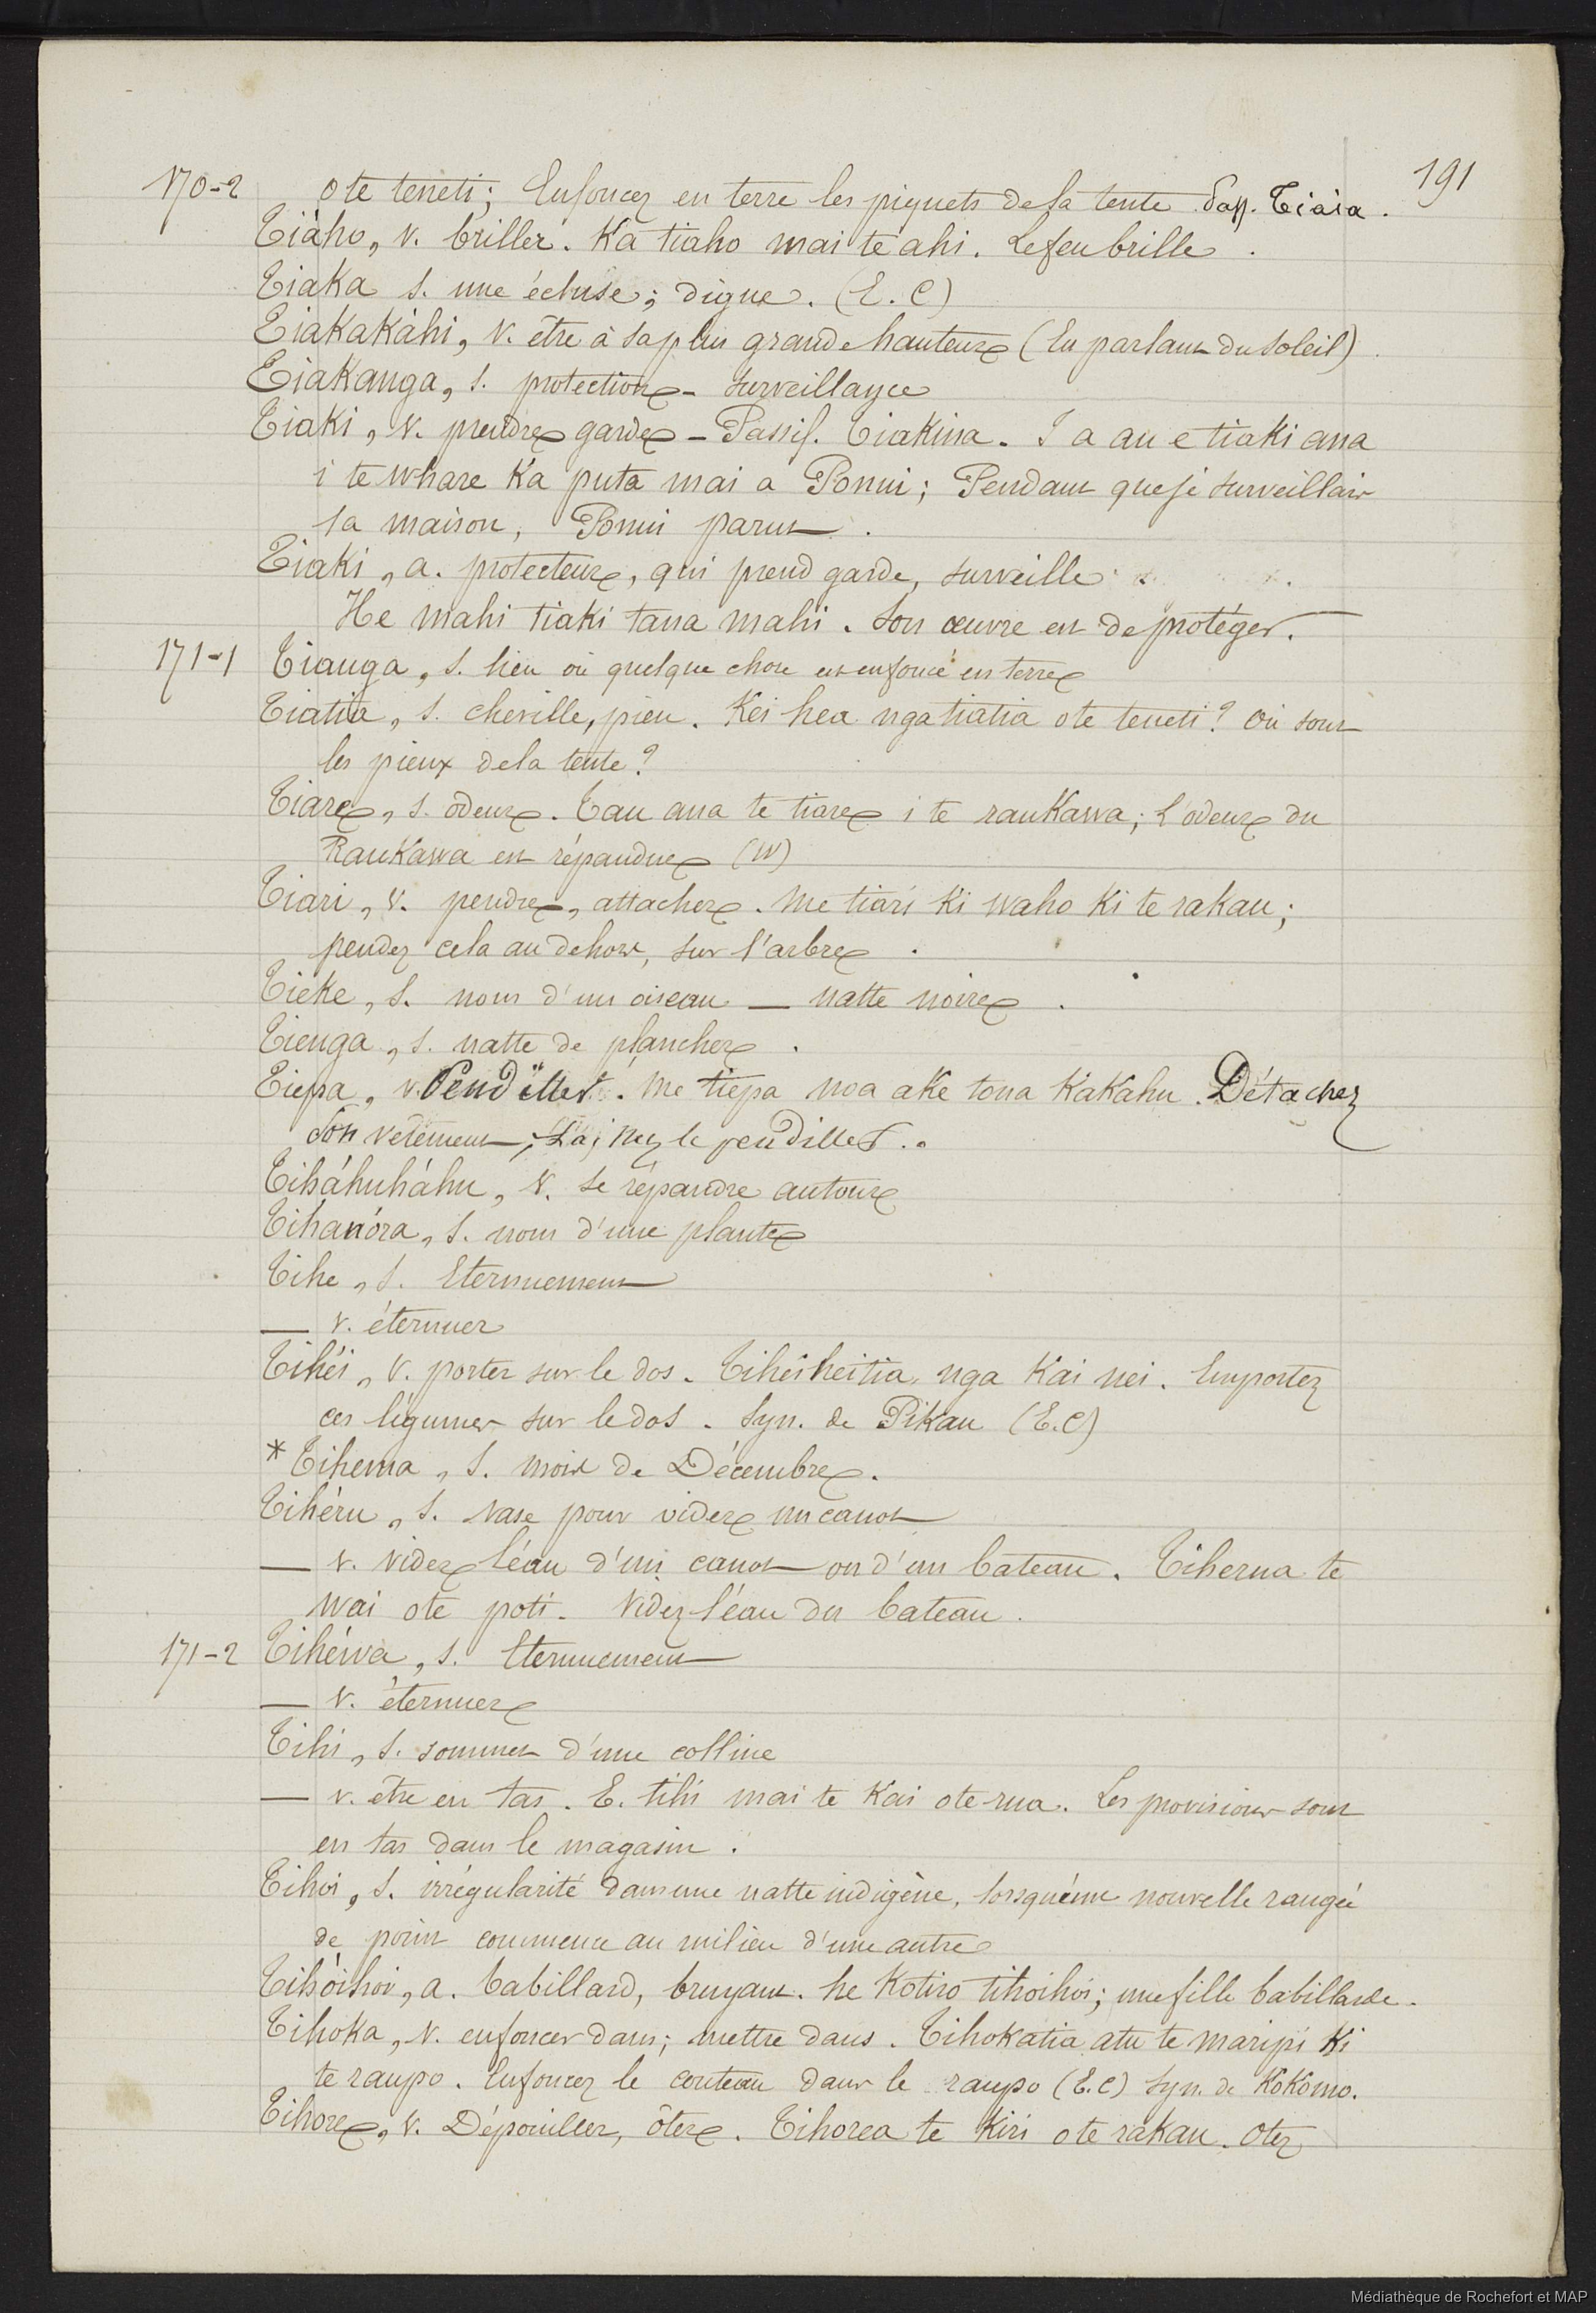 191
170-2 o te teneti; Enfoncez en terre les piquets de la tente. Pass. Tiaia.
Tiàho, v. briller. Ka tiaho mai te ahi. Le feu brille.
Tiaka s. une écluse; digue. (E. C)
Tiakakàhi, v. être à sa plus grande hauteur (En parlant du soleil).
Tiakanga, s. protection - surveillance
Tiaki, v. prendre garde - Passif. Tiakina. I a au e tiaki ana
i te whare Ka puta mai a Ponui; Pendant que je surveillais
la maison, Ponui parut.
Tiaki, a. protecteur, qui prend garde, surveille
He mahi tiaki tana mahi. Son œuvre est de protéger.
171-1 Tianga, s. lieu où quelque chose est enfoncé en terre
Tiatia, s. cheville, pieu. Kei hea nga tiatia o te teneti? Où sont
les pieux de la tente?
Tiare, s. odeur. Tau ana te tiare i te raukawa; L'odeur du
Raukawa est répandue (W)
Tiari, v. pendre, attacher. Me tiari ki waho ki te rakau;
pendez cela au dehors, sur l'arbre.
Tieke, s. nom d'un oiseau — natte noire.
Tienga, s. natte de plancher.
Tiepa, v. Pendiller. Me tiepa noa ake tona Kakahu. Détachez
son vêtement; Laissez le pendiller.
Tiháhuháhu, v. se répandre autour
Tihanóra, s. nom d'une plante
Tihe, s. Eternuement
— v. éternuer
Tihéi, v. porter sur le dos. Tiheiheitia nga Kai nei. Emportez
ces légumes sur le dos. Syn. de Pikau (E.C)
* Tihema, s. mois de Décembre.
Tihéru, s. vase pour vider un canot
— v. vider l'eau d'un canot ou d'un bateau. Tiherua te
wai o te poti. Videz l'eau du bateau.
171-2 Tihéwa, s. Eternuement
— v. éternuer
Tihi, s. sommet d'une colline
— v. être en tas. E. tihi mai te Kai o te rua. Les provisions sont
en tas dans le magasin.
Tihoi, s. irrégularité dans une natte indigène, lorsqu'une nouvelle rangée
de point commence au milieu d'une autre
Tihóihoi, a. babillard, bruyant. he Kotiro tihoihoi; une fille babillarde.
Tihoka, v. enfoncer dans; mettre dans. Tihokatia atu te maripi ki
te raupo. Enfoncez le couteau dans le raupo (E.C) Syn. de Kokomo.
Tihore, v. Dépouiller, ôter. Tihorea te Kiri o te rakau. Otez
Médiathèque de Rochefort et MAP